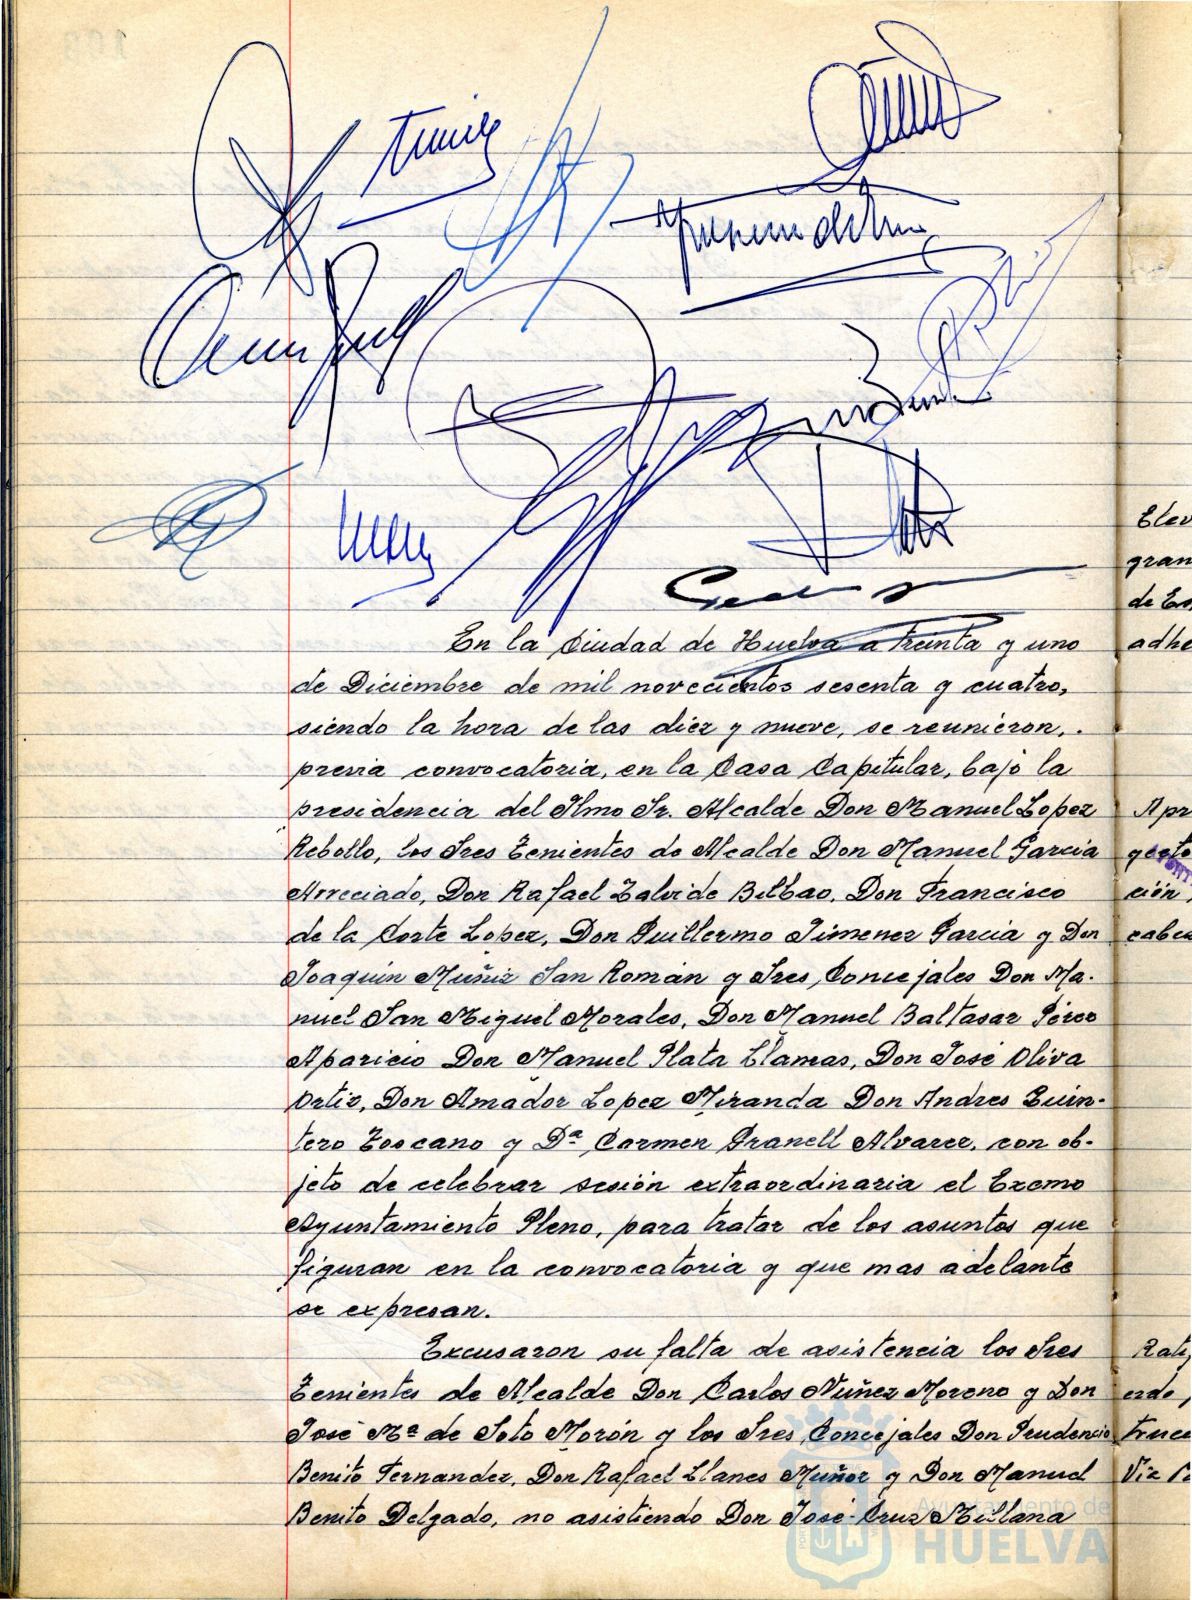 En la Ciudad de Huelva a treinta y uno
de Diciembre de mil novecientos sesenta y cuatro,
siendo la hora de las diez y nueve, se reunieron,.
previa convocatoria, en la Casa Capitular, bajo la
presidencia del Ilmo Sr. Alcalde Don Manuel Lopez
Rebollo, los Sres Tenientes de Alcalde Don Manuel Garcia
Arreciado, Don Rafael Zalvide Bilbao, Don Francisco
de la Corte Lopez, Don Guillermo Jimenez Garcia y Don
Joaquin Muñiz San Román y Sres, Concejales Don Ma-
nuel San Miguel Morales, Don Manuel Baltasar Pérez
Aparicio Don Manuel Plata Llamas, Don José Oliva
Ortiz, Don Amador Lopez Miranda Don Andres Quin-
tero Toscano y Dª Carmen Granell Alvarez, con ob-
jeto de celebrar sesión extraordinaria el Excmo
Ayuntamiento Pleno, para tratar de los asuntos que
figuran en la convocatoria y que mas adelante
se expresan.
Excusaron su falta de asistencia los Sres
Tenientes de Alcalde Don Carlos Nuñez Moreno y Don
José Mª de Soto Morón y los Sres, Concejales Don Prudencio
Benito Fernandez, Don Rafael Llanes Muñoz y Don Manuel
Benito Delgado, no asistiendo Don José Cruz Millana
Elev
gran
adhe
Apr
ción,
cabez
Ayuntamiento de
HUELVA